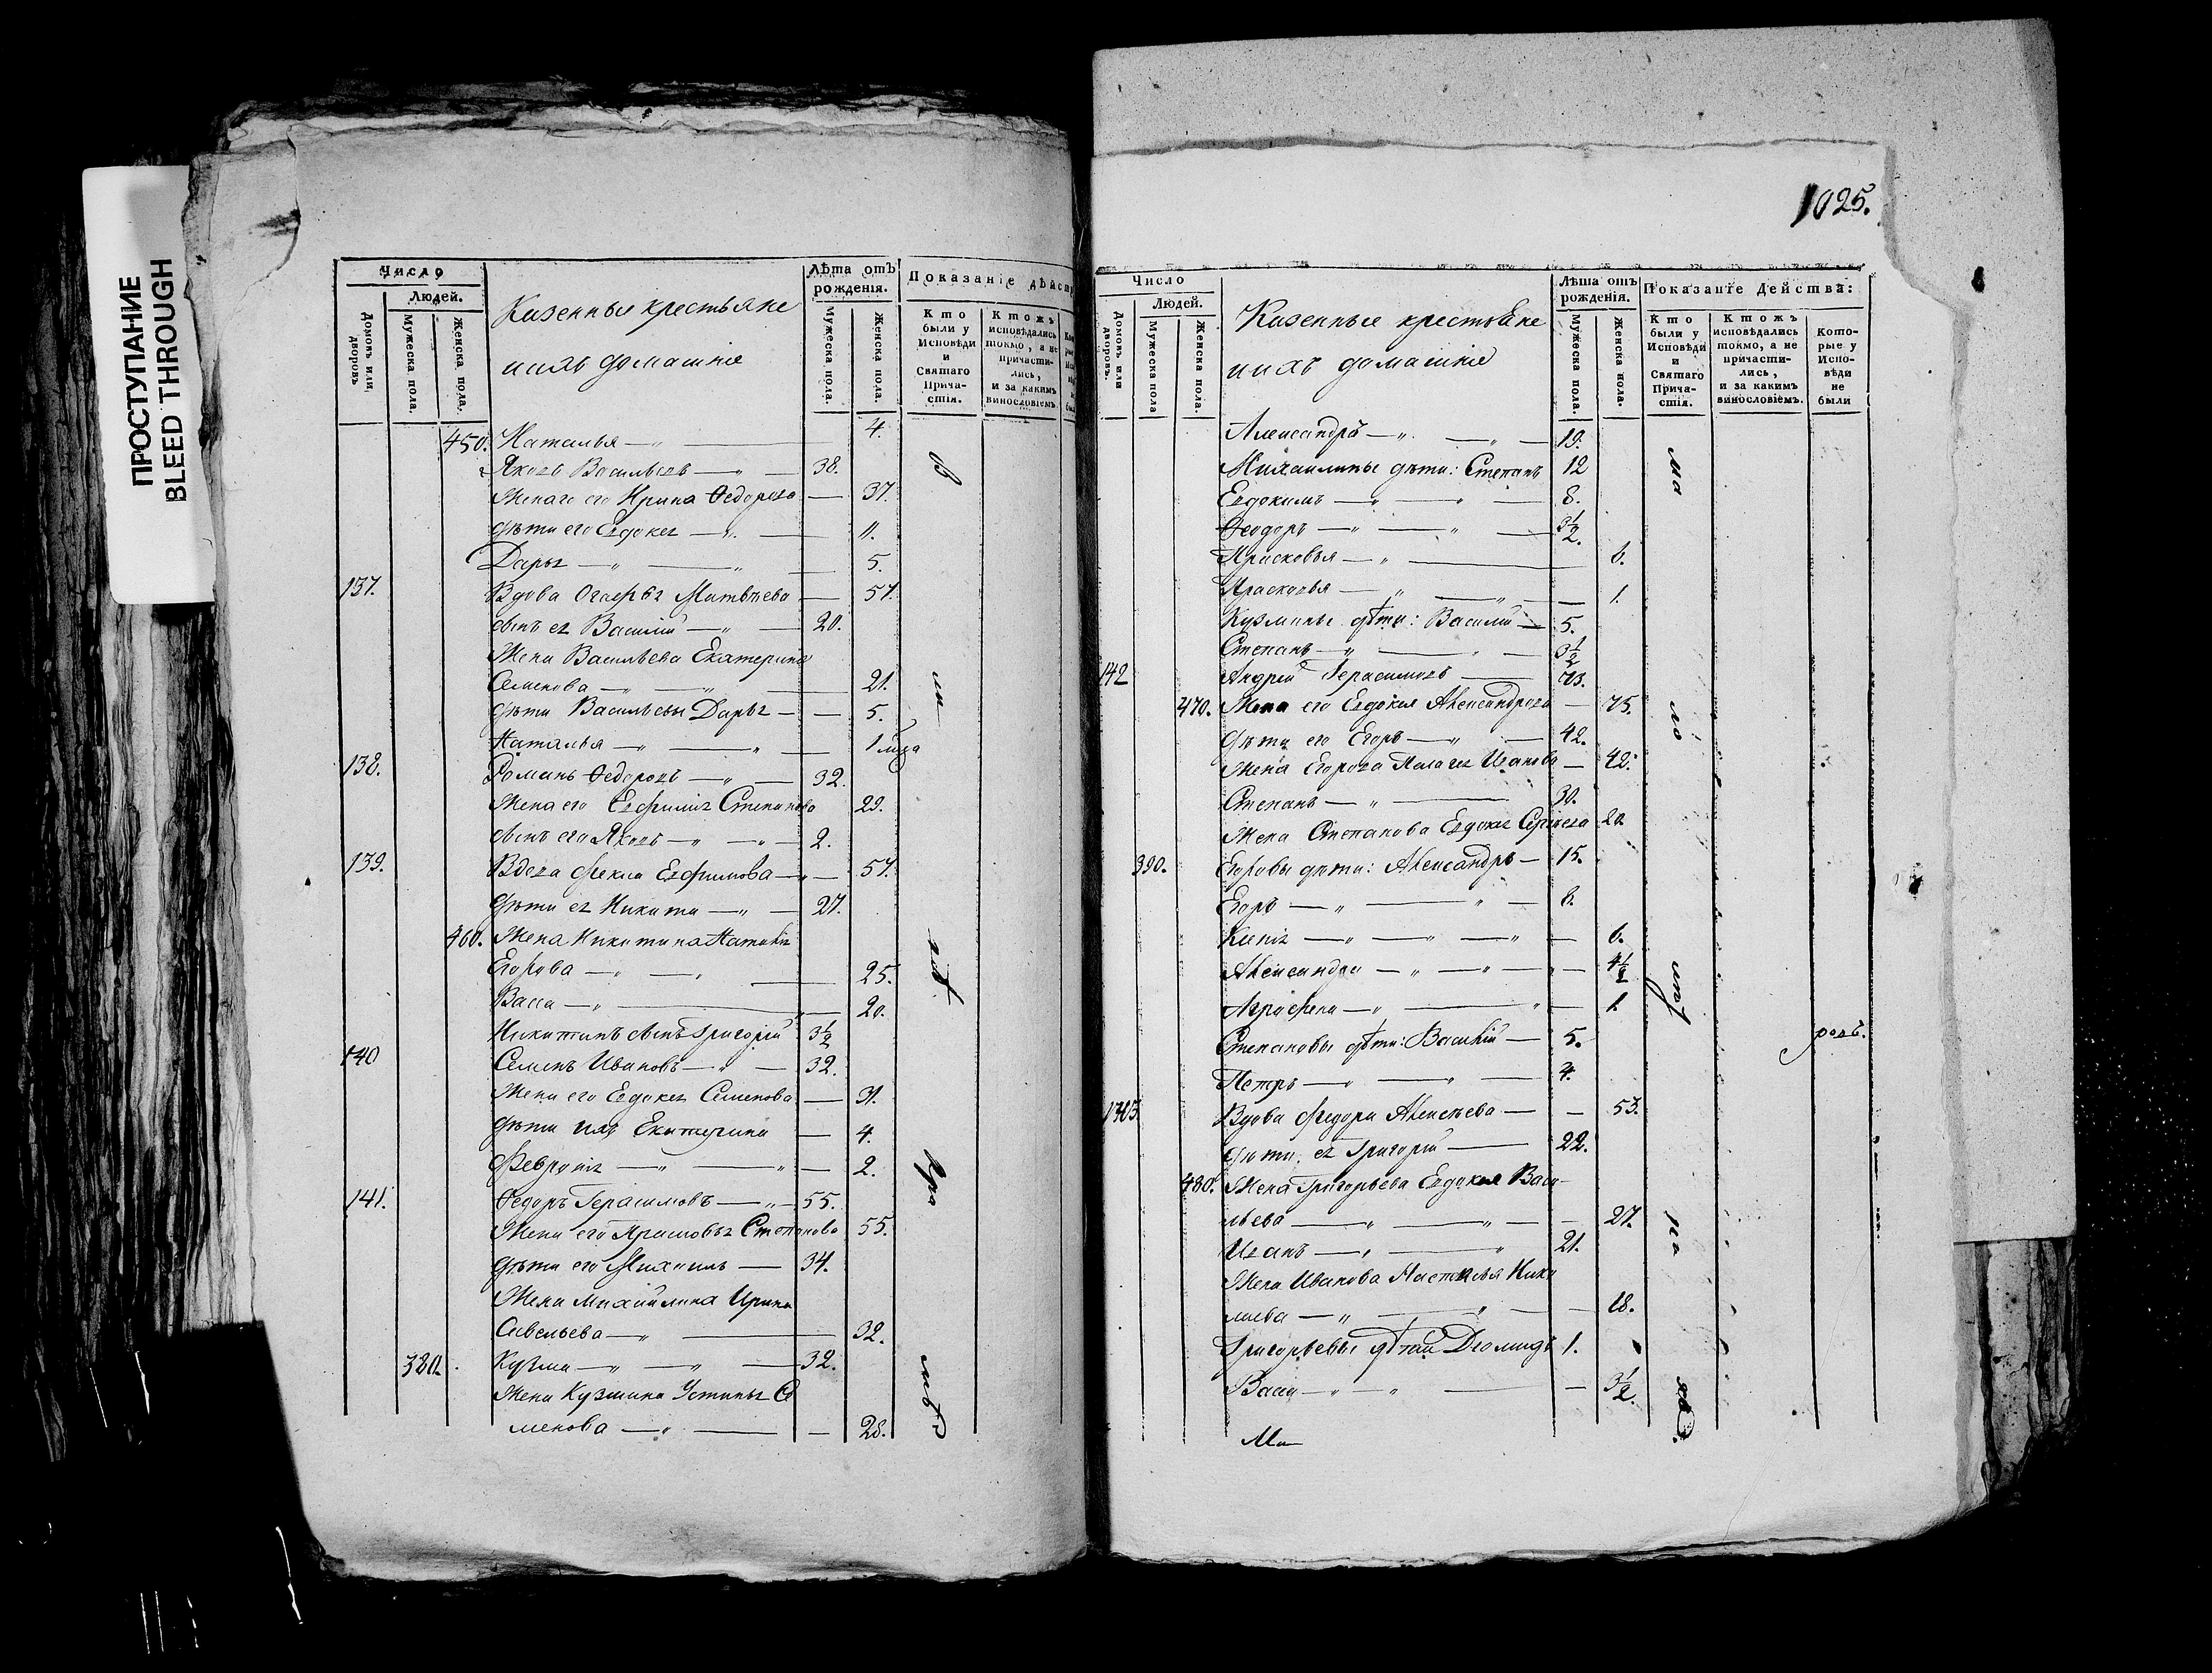 ПРОСТУПАНИЕ
BLEED THROUGH
Число
Людей.
Домовъ или дворовъ
Мужеска пола.
Женска пола.
Казенные крестьяне
и ихъ домашніе
Лѣта отъ рожденія.
Мужеска пола.
Женска пола.
Показаніе дѣйст
Кто были у Исповѣди и Святаго Причастія.
Ктожъ исповѣдались токмо, а не причастились, и за какимъ винословіемъ.
450. Наталья — 4.
Яковъ Васильевъ — 38.
Жена его Ирина Ѳедорова — 37.
дѣти его Евдокея — 11.
Дарья — 5.
137. Вдова Матвѣева — 57.
сынъ ея Василій — 20.
Жена Васильева Екатерина
Семенова — 21.
дѣти Васильевы Дарья — 5.
Наталья — 1
138. Романъ Ѳедоровъ — 32.
Жена его Евфимія Степанова 29.
сынъ его Яковъ — 2.
139. Вдова Фекла Евфимова — 57.
дѣти ея Никита — 27.
460. Жена Никитина Наталія
Егорова — 25.
Васса — 20.
Никитинъ сынъ Григорій 3½
140 Семенъ Ивановъ — 32.
Жена его Евдокея Семенова — 31.
дѣти ихъ Екатерина — 4.
Февронія — 2.
141. Ѳедоръ Герасимовъ — 55.
Жена его Прасковья Степанова 55.
дѣти его Михаилъ — 34.
Жена Михайлина Ирина
Савельева — 32.
380. Кузма — 32.
Жена Кузмина Устинья Се
менова — 28.
1025.
Число
Людей.
Домовъ или дворовъ.
Мужеска пола
Женска пола.
Казенные крестьяне
и ихъ домашніе
Лѣта отъ рожденія.
Мужеска пола.
Женска пола.
Показаніе Действа:
Кто были у Исповѣди и Святаго Причастія.
Ктожъ исповѣдались токмо, а не причастились, и за какимъ винословіемъ.
Которые у Исповѣди не были
Александръ — 19.
Михаилины дѣти: Степанъ 12
Евдокимъ — 8.
Ѳеодоръ — 3½.
Прасковья — 6.
Прасковья — 1.
Кузмины дѣти: Василій — 5.
Степанъ — 3½
142 Андрей Герасимовъ — 73.
470. Жена его Евдокея Александрова — 75.
дѣти его Егоръ — 42.
Жена Егорова Палагея Иванова — 42.
Степанъ — 30.
Жена Степанова Евдокея Сергѣева
390. Егоровы дѣти: Александръ — 15.
Егоръ — 6.
Ксенія — 6.
Александра — 4½
Аграфена — 1.
Степановы дѣти: Василій — 5.
Петръ — 4.
Вдова Федора Алексѣева — 53.
дѣти ея Григорій — 22.
480. Жена Григорьева Евдокея Васи-
льева — 27.
Иванъ — 21.
Жена Иванова Настасья Нико
лаева — 18.
Григорьевы дѣти Деомидъ 1.
Васса — 3½.